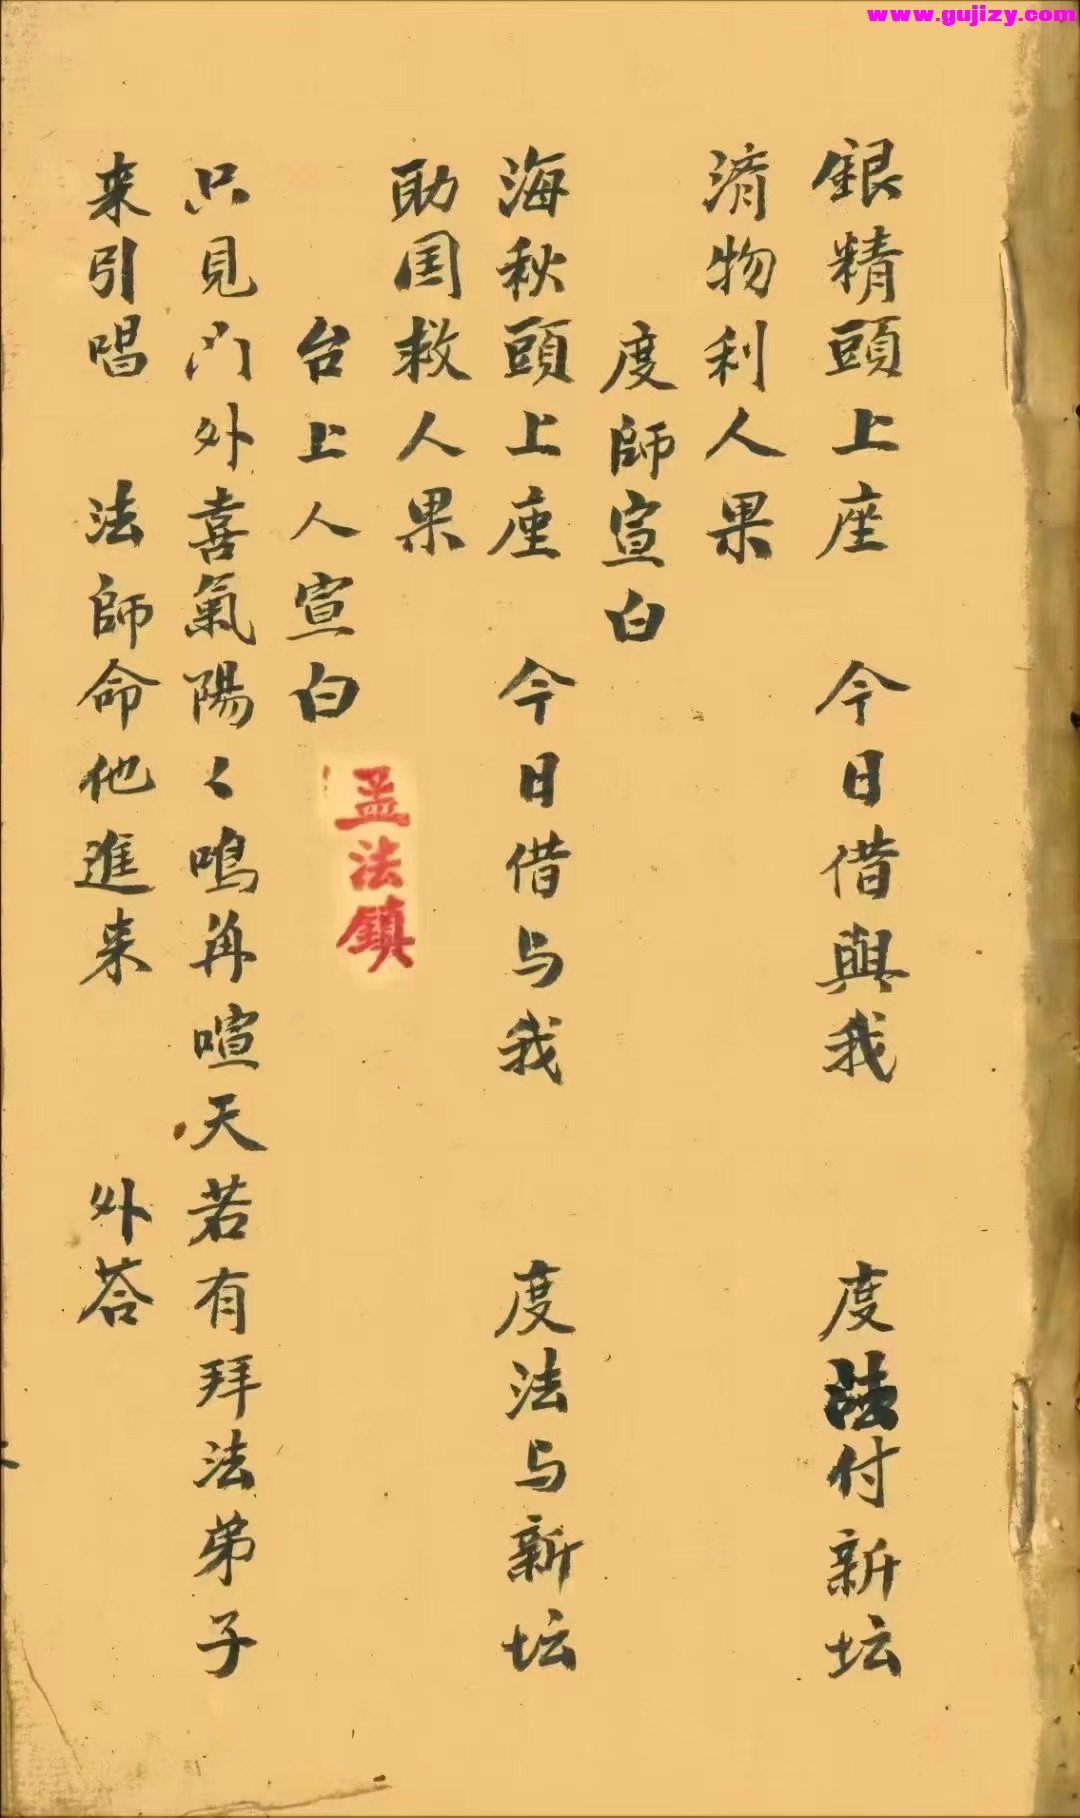 www.gujizy.com
銀精頭上座　今日借與我　度法付新坛
済物利人果
度師宣白
海秋頭上座　今日借与我　度法与新坛
助国救人果
台上人宣白
孟法鎮
只見门外喜氣陽〻鳴再喧天若有拜法弟子
来引唱　法師命他進来　外荅